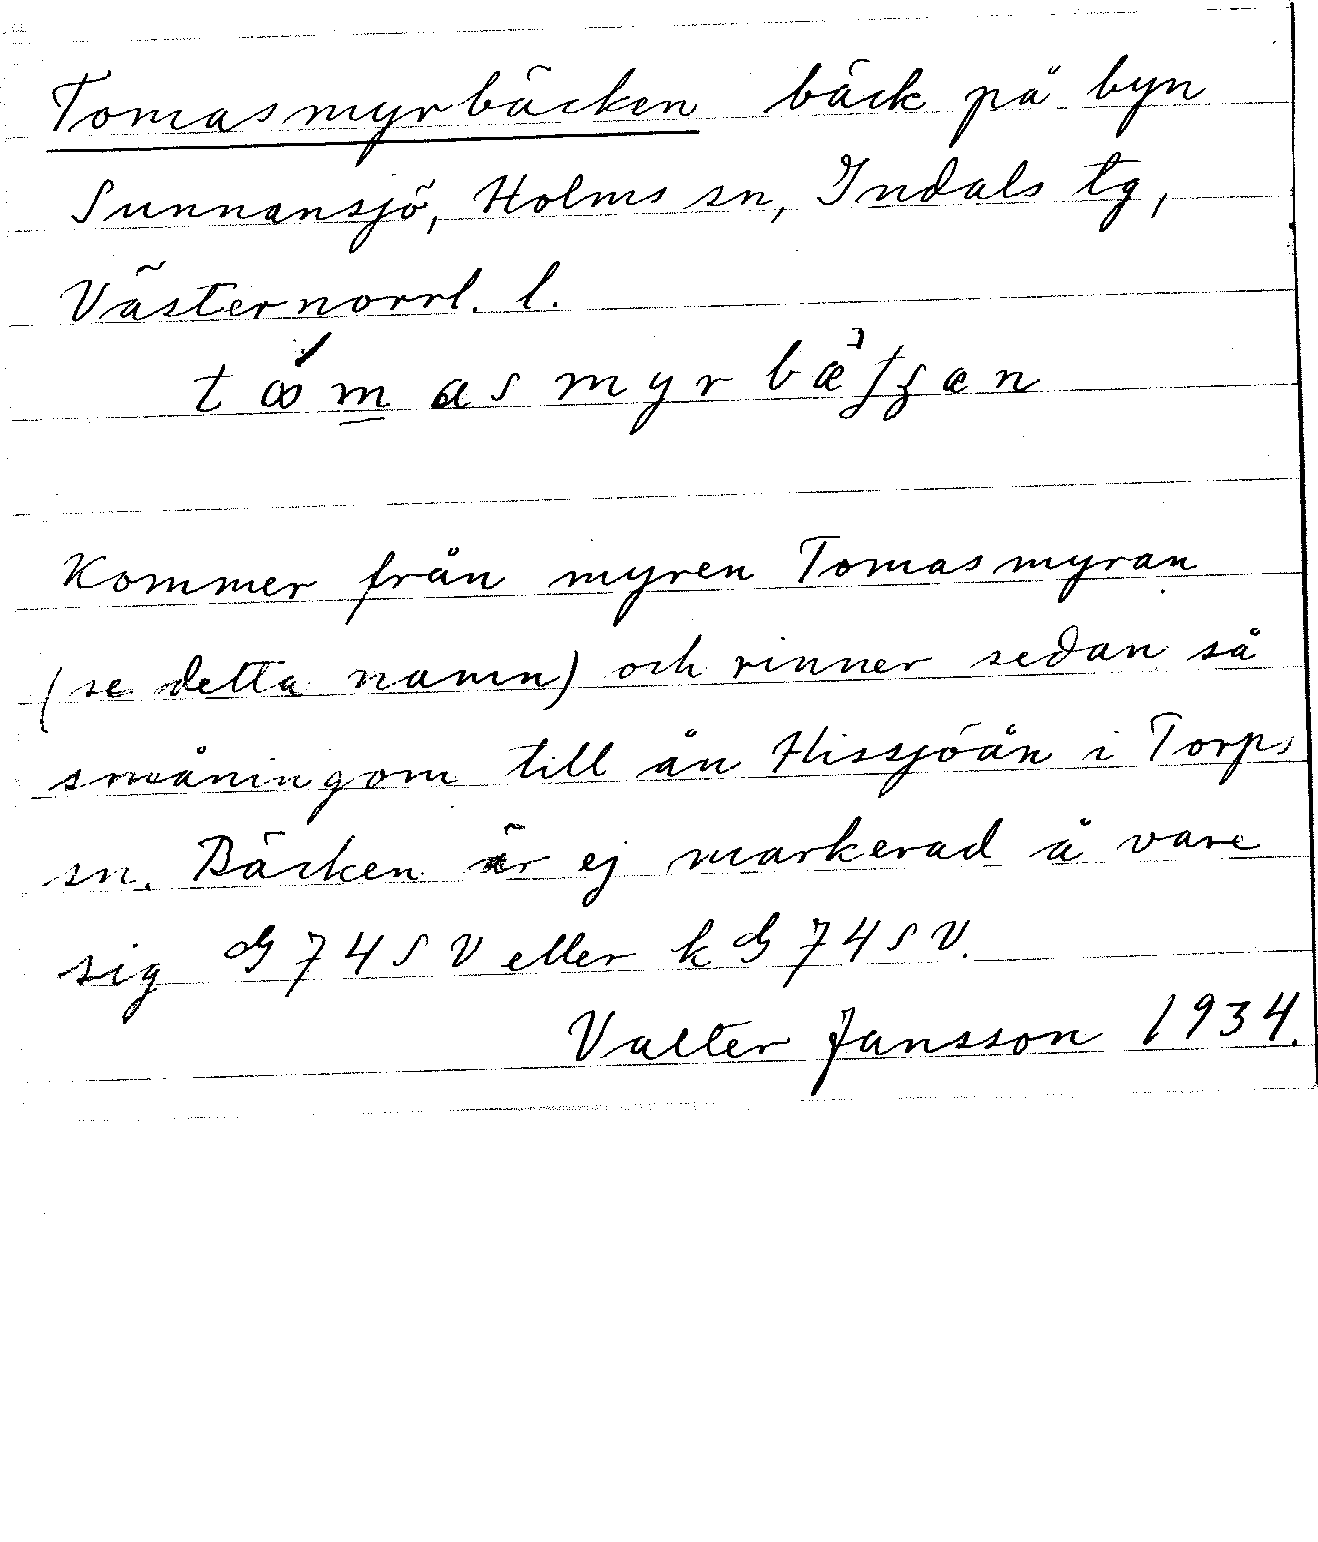 Tomasmyrbäcken bäck på byn
Sunnansjö, Holms sn, Indals tg,
Västernorrl. l.
Kommer från myren Tomasmyran
(se detta namn) och rinner sedan så
småningom till ån Hissjöån i Torps
sn. Bäcken är ej markerad å vare
sig G 74 S V eller k G 74 S V.
Valter Jansson 1934.